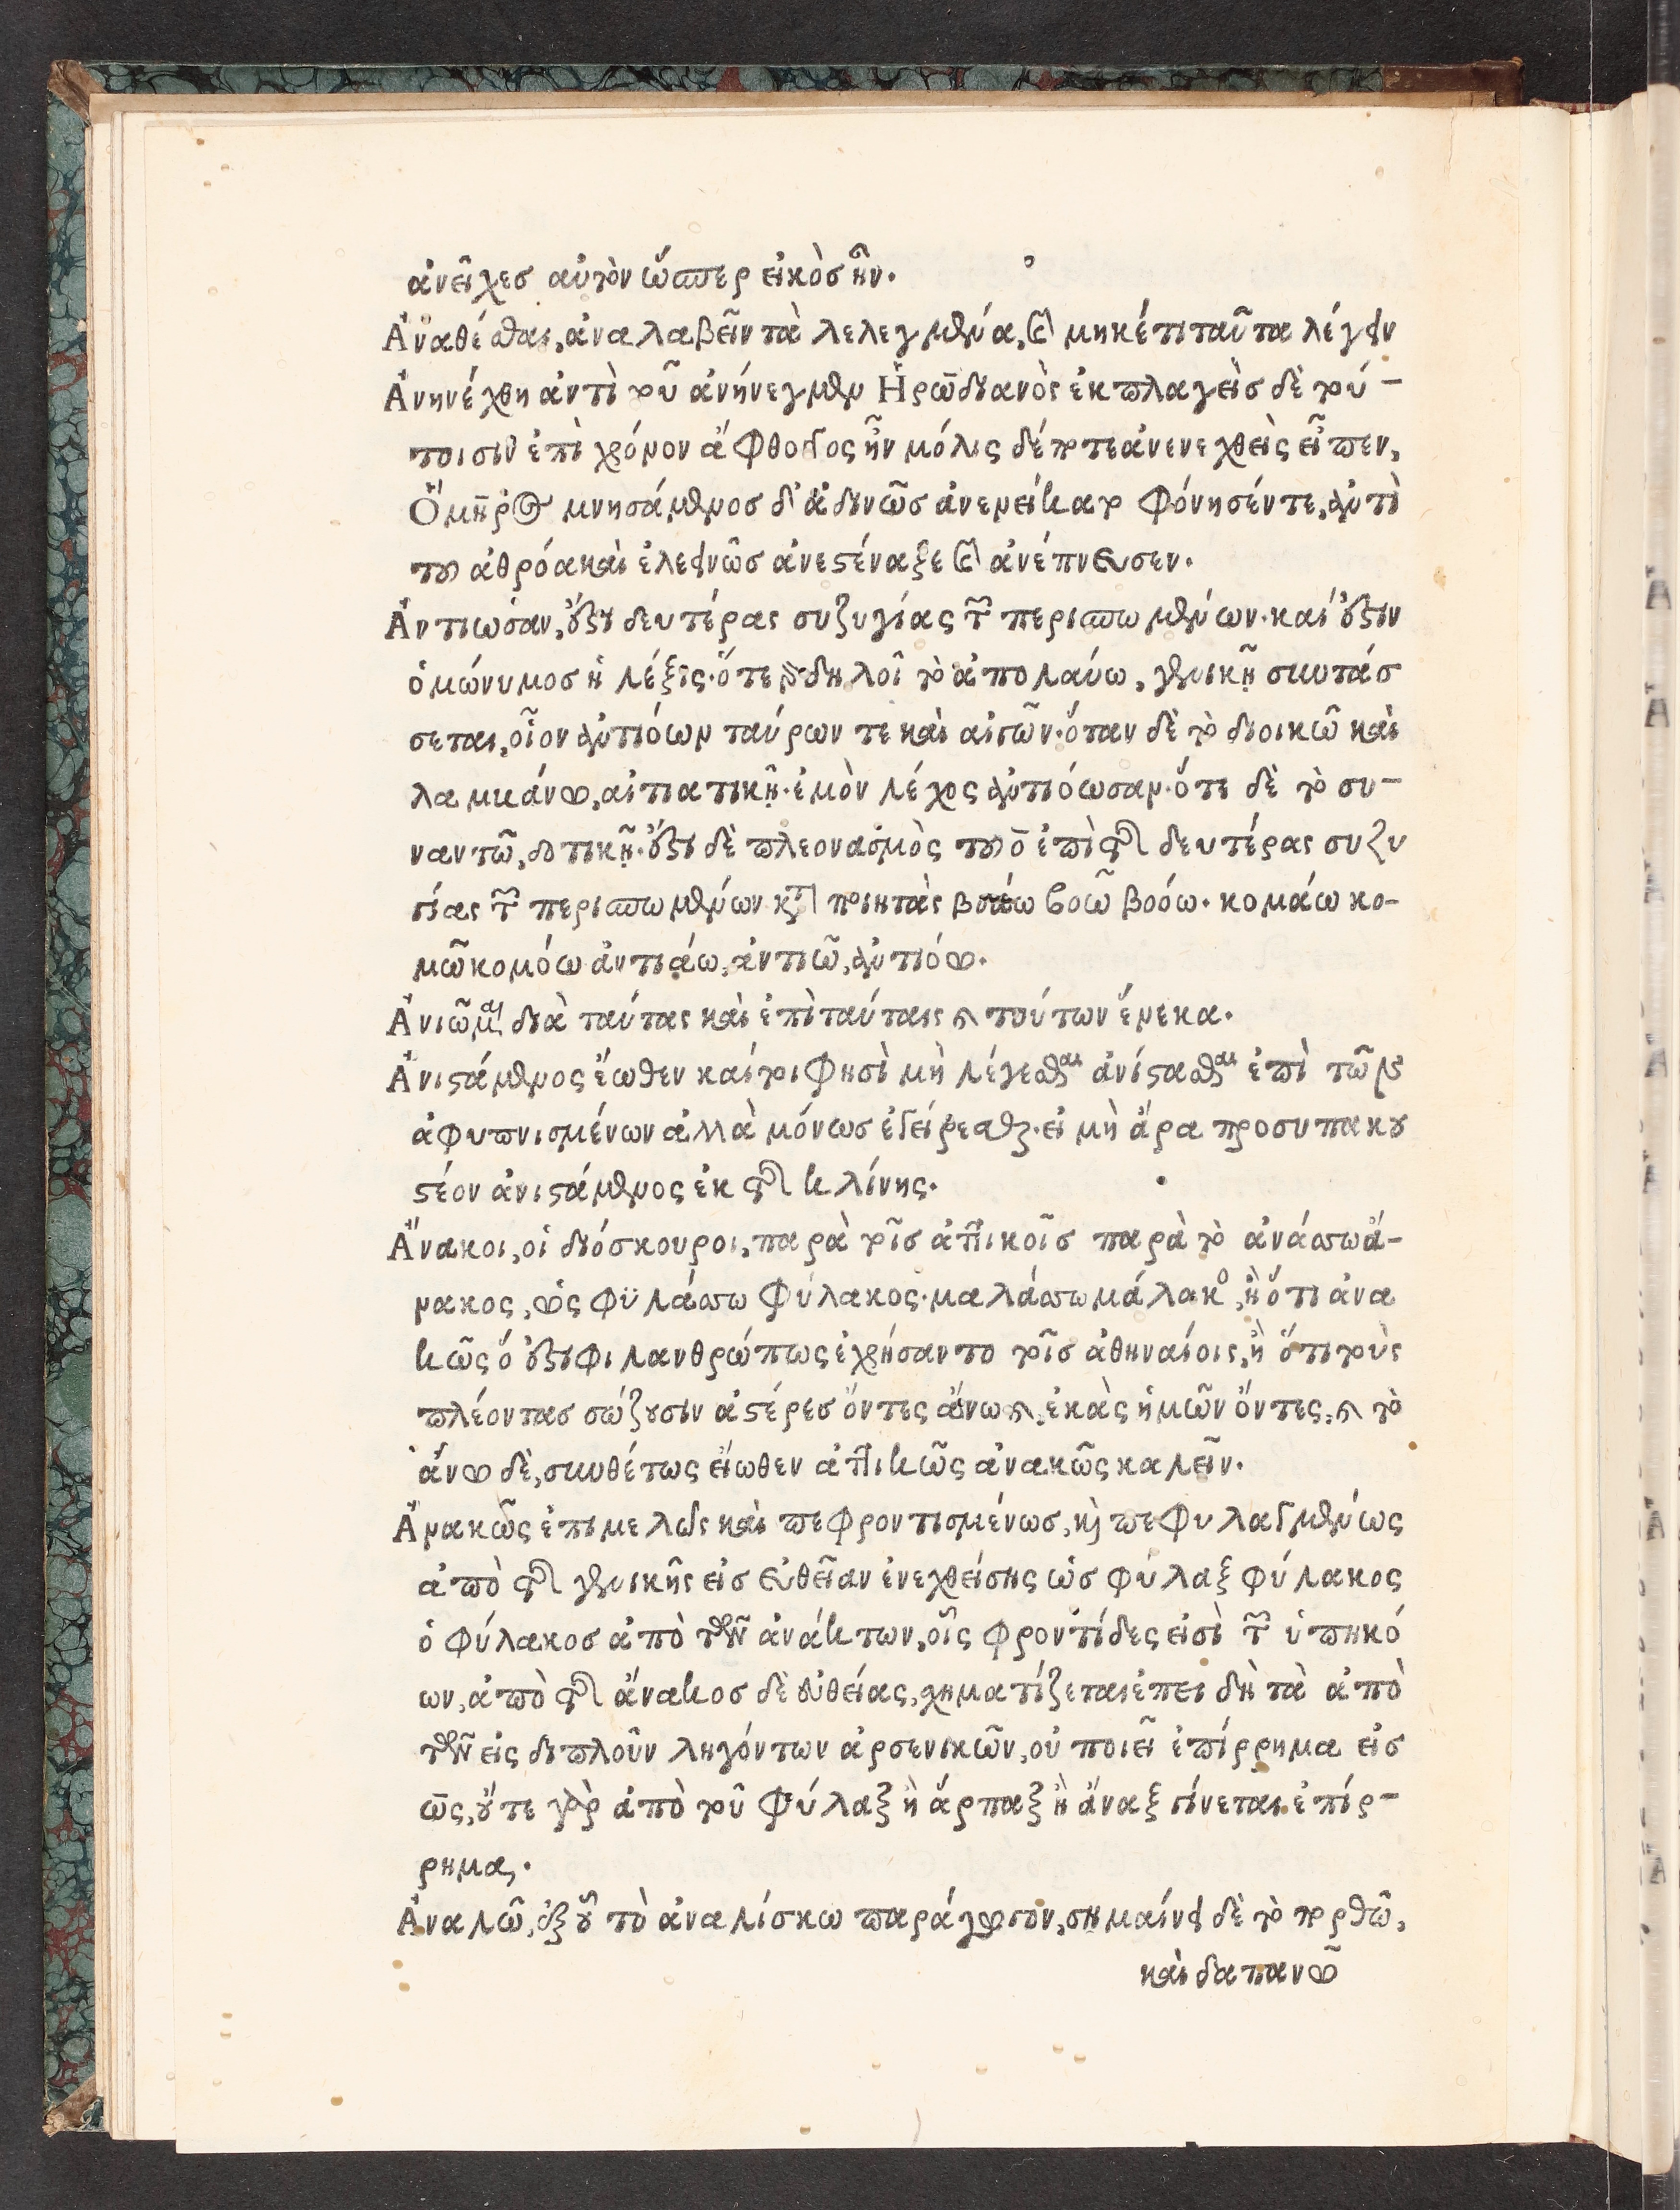 ἀνεῖχεσ αὐτὸν ὥσπερ εἰκὸσ ἦν.
Ἀναθέσθαι, ἀναλαβεῖν τὰ λελεγμένα, καὶ μηκέτι ταῦτα λέγειν
Ἀνηνέχθη ἀντὶ τοῦ ἀνήνεγμεν Ἡρῳδιανὸς ἐκπλαγεὶσ δὲ τού-
τοισιν ἐπὶ χρόνον ἄφθογγος ἦν μόλις δέ ποτε ἀνενεχθεὶς εἶπεν,
Ὅμηρος μνησάμενοσ δ' ἁδινῶσ ἀνενείκατο φόνησέν τε, ἀντὶ
τοῦ ἀθρόα καὶ ἐλεεινῶσ ἀνεστέναξε καὶ ἀνέπνευσεν.
Ἀντιωσαν, ἔστι δευτέρας συζυγίας τῶν περισπωμένων. καί ἔστιν
ὁμώνυμοσ ἡ λέξις. ὅτε μὲν δηλοῖ τὸ ἀπολαύω, γενικῇ συντάσ
σεται, οἷον ἀντιόων ταύρων τε καὶ αἰγῶν. ὅταν δὲ τὸ διοικῶ καὶ
λαμβάνω, αἰτιατικῇ. ἐμὸν λέχος ἀντιόωσαν. ὅτε δὲ τὸ συ-
ναντῶ, δοτικῇ. ἔστι δὲ πλεονασμὸς τοῦ ο̄ ἐπὶ τῆς δευτέρας συζυ
γίας τῶν περισπωμένων κατὰ ποιητὰς βοάω βοῶ βοόω. κομάω κο-
μῶ κομόω ἀντιάω, ἀντιῶ, ἀντιόω.
Ἀνιῶμαι διὰ ταύτας καὶ ἐπὶ ταύταις καὶ τούτων ἕνεκα.
Ἀνιστάμενος ἕωθεν καίτοι φησὶ μὴ λέγεσθαι ἀνίστασθαι ἐπὶ τῶν
ἀφυπνισμένων ἀλλὰ μόνωσ ἐγείρεσθαι. εἰ μὴ ἄρα προσυπακου
στέον ἀνιστάμενος ἐκ τῆς κλίνης.
Ἄνακοι, οἱ διόσκουροι, παρὰ τοῖσ ἀττικοῖσ παρὰ τὸ ἀνάσσω ἄ-
νακος, ὡς φϋλάσσω φύλακος. μαλάσσω μάλακος, ἢ ὅτι ἀνα
κῶς ὅ ἐστι φιλανθρώπως ἐχρήσαντο τοῖσ ἀθηναίοις, ἢ ὅτι τοὺς
πλέοντασ σώζουσιν ἀστέρεσ ὄντες ἄνω καὶ, ἑκὰς ἡμῶν ὄντες, καὶ τὸ
ἄνω δὲ, συνθέτως εἴωθεν ἀττικῶς ἀνακῶς καλεῖν.
Ἀνακῶς ἐπιμελῶς καὶ πεφροντισμένωσ, καὶ πεφυλαγμένως
ἀπὸ τῆς γενικῆς εἰσ εὐθεῖαν ἐνεχθείσης ὡσ φύλαξ φύλακος
ὁ φύλακοσ ἀπὸ τῶν ἀνάκτων, οἷς φροντίδες εἰσὶ τῶν ὑπηκό
ων, ἀπὸ τῆς ἄνακοσ δὲ εὐθείας, χηματίζεται ἐπειδὴ τὰ ἀπὸ
τῶν εἰς διπλοῦν ληγόντων ἀρσενικῶν, οὐ ποιεῖ ἐπίρρημα εἰσ
ως, οὔτε γὰρ ἀπὸ τοῦ φύλαξ ἢ ἅρπαξ ἢ ἄναξ γίνεται ἐπίρ-
ρημα.
Ἀναλῶ, ἐξ οὗ τὸ ἀναλίσκω παράγωγον, σημαίνει δὲ τὸ πορθῶ,
καὶ δαπανῶ